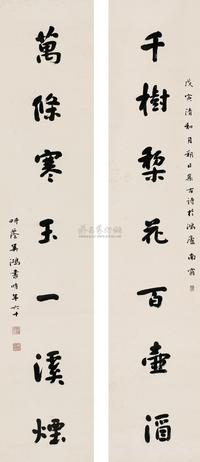 千樹棃花百壺酒
戊寅清和月朔日集古詩於鴻廬南窗
萬條寒玉一溪煙
吳鴻書時年六十